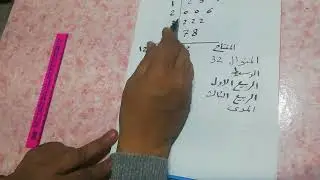 2 0 0 6
2 2 2
7 8
المفتاح
المنوال 32
الوسيط
الربيع الأول
الربيع الثالث
المدى